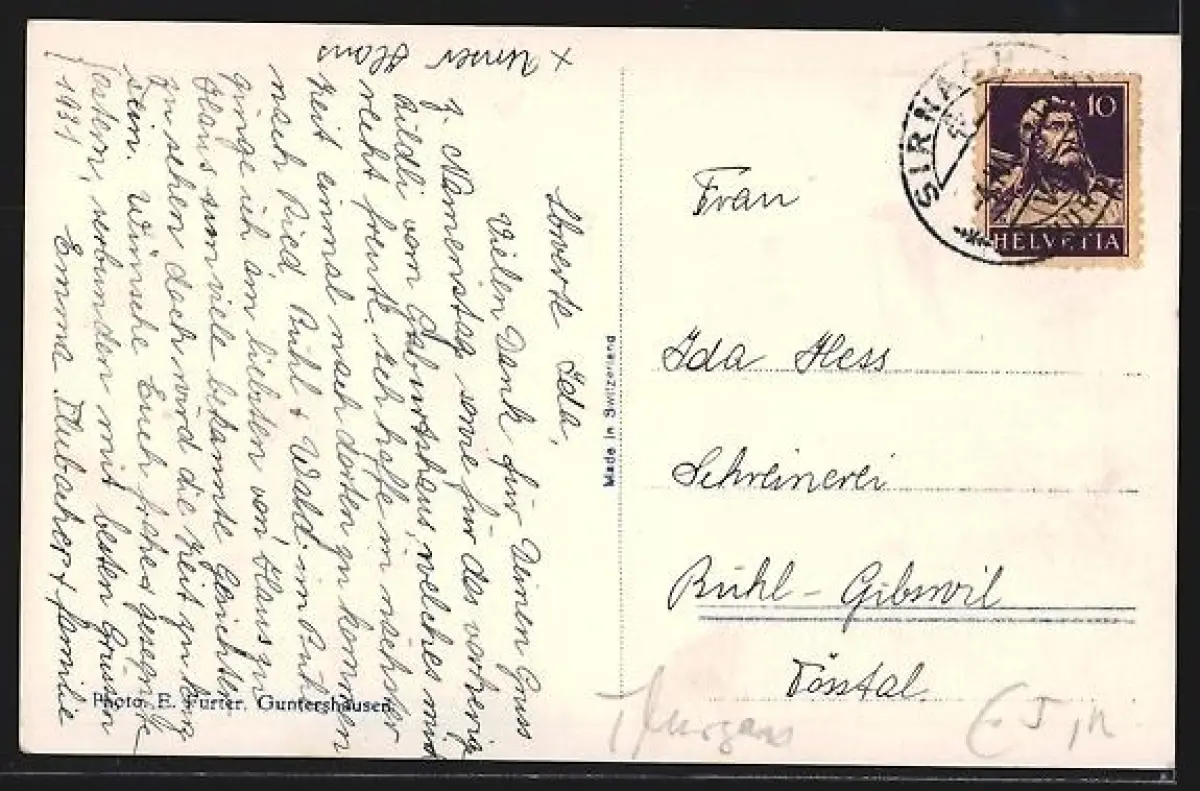 x unser Haus
Werte Ida,
Vielen Dank für Deinen Gruss
z. Namenstag sowie für das vorherig
Bildli vom Geburtshaus, welches mich
recht freute. Ich hoffe in nächster
Zeit einmal nach dorten zu kommen
nach Ried Bühl & Wald. im
ginge ich am liebsten von Haus zu
Haus um viele bekannte Gesichter
zu sehen doch wird die Zeit zu kurz
sein. Wünsche Euch gesegnete
Ostern, verbunden mit besten Grüssen
1931 Emma Flubacher & familie
Photo E. Furter, Guntershausen
Made in Switzerland
SIRNACH
10
HELVETIA
Frau
Ida Hess
Schreinerei
Bühl - Gibswil
Tösstal.
Thurgau